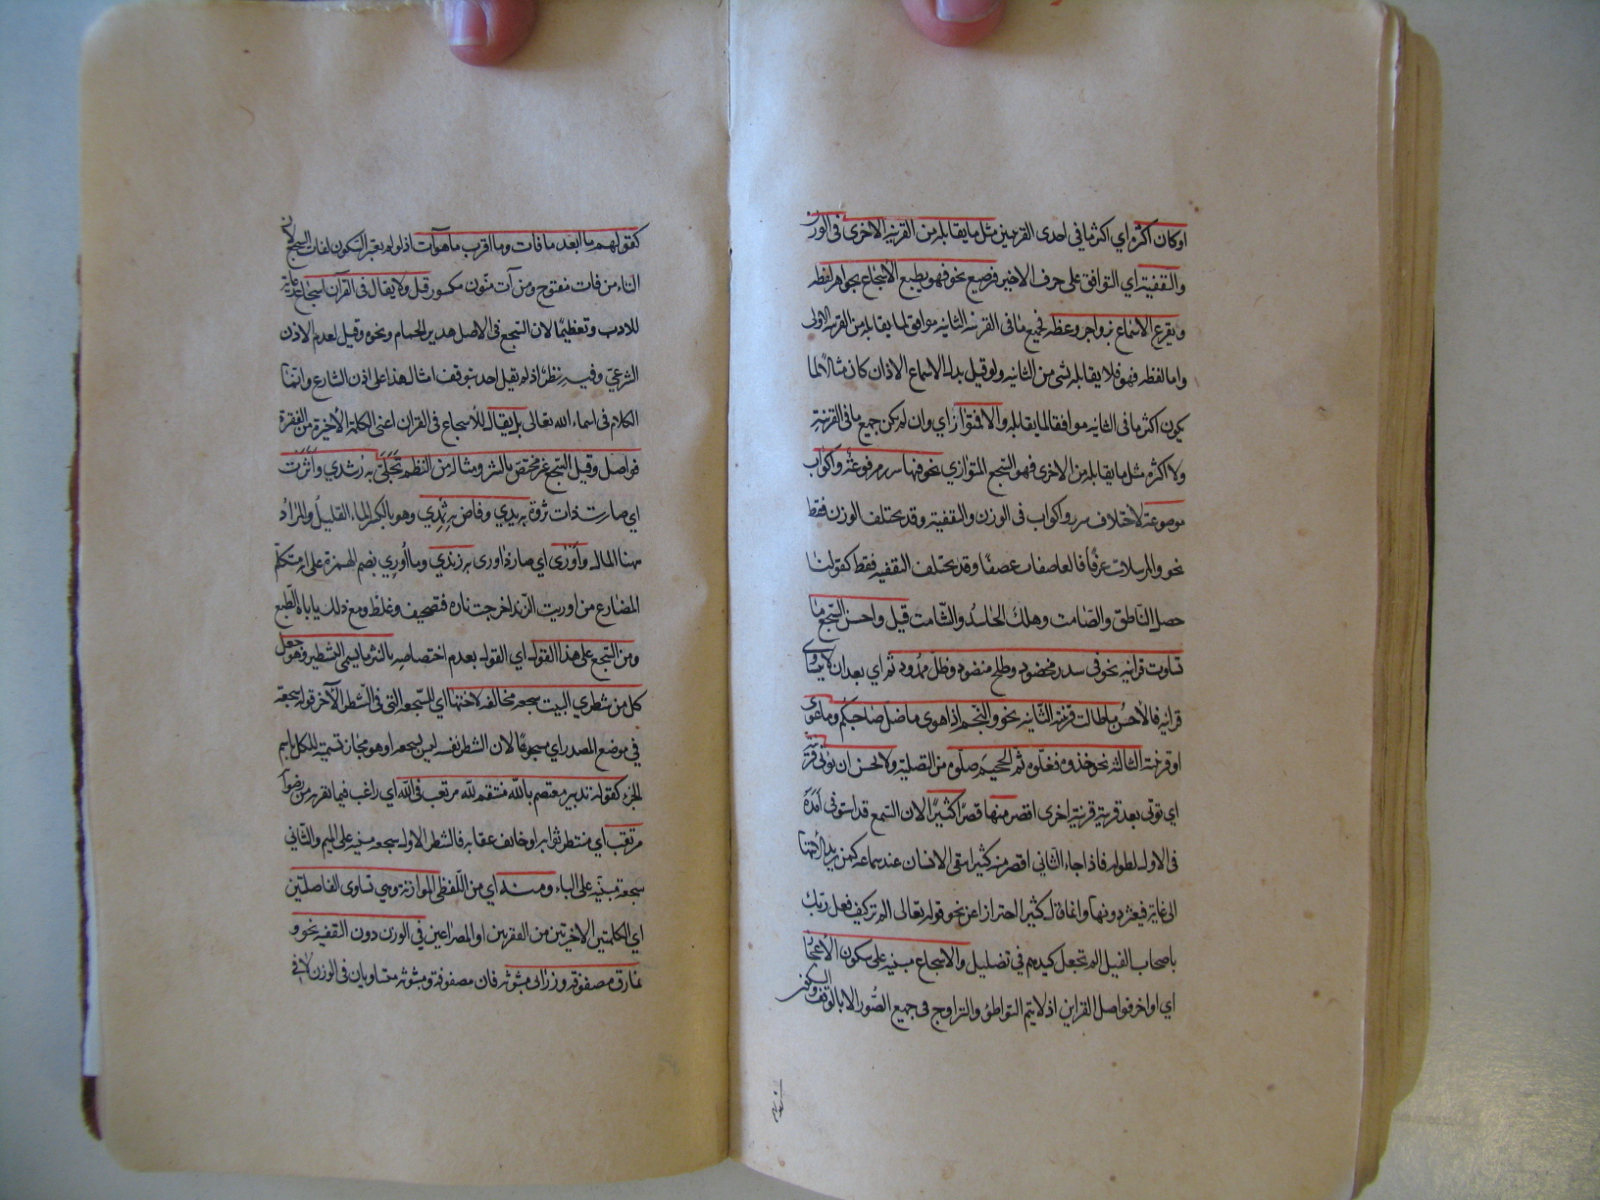 او كان اكثره اي اكثر ما في احدى القرينتين مثل ما يقابله من القرينة الاخرى في الوزن
والتقفية اي التوافق على حرف الاخير فترصيع نحو فهو يطبع الاسجاع بجواهر لفظه
ويقرع الاسماع بزواجر وعظه فجميع ما في القرينة الثانية موافق لما يقابله من القرينة الاولى
واما لفظه فهو فلا يقابله شئ من الثانية ولو قيل بدل الاسماع الاذان كان مثالا لما
يكون اكثر ما في الثانية موافقا لما يقابله والا فمتواز اي وان لم يكن جميع ما في القرينة
ولا اكثره مثل ما يقابله من الاخرى فهو السجع المتوازي نحو فيها سرر مرفوعة واكواب
موضوعة لاختلاف سرر واكواب في الوزن والتقفية وقد يختلف الوزن فقط
نحو والمرسلات عرفًا فالعاصفات عصفًا وقد يختلف التقفية فقط كقولنا
حصل النّاطق والصّامت وهلك الحاسدُ والشّامت قيل واحسن السّجع ما
تساوت قرائنه نحو في سدر مخضود وطلح منضود وظلّ ممدود ثم اي بعد ان لا يتساوى
قرائنه فالاحسن ما طالت قرينته الثّانية نحو والنّجم اذا هوى ما ضلّ صاحبكم وما غوى
او قرينته الثالثة نحو خذوه فغلّوه ثم الجحيم صلّوه من التصلية ولا يحسن ان يؤتى قرينة
اي تؤتى بعد قرينة قرينة اخرى اقصر منها قصرًا كثيرًا لان السّمع قد استوفى أمَدَه
في الاول لطوله فاذا جاء الثاني اقصر منه كثيرا يبقى الانسان عند سماعه كمن يريد الانتهاء
الى غاية فيعثر دونها وانما قال كثيرا احترازا عن نحو قوله تعالى الم تر كيف فعل ربّك
باصحاب الفيل الم يجعل كيدهم في تضليل والاسجاع مبنيه على سكون الاعجاز
اي اواخر فواصل القراين اذ لا يتم التواطؤ والتزاوج في جميع الصُّور الا بالوقف والسكون
كقولهم ما ابعد ما فات وما اقرب ما هو آت اذ لو لم يعتبر السّكون لفات السجع لان
التاء من فات مفتوح ومن آت منّون مكسور قيل ولا يقال في القرآن اسجاع رعاية
للادب وتعظيمًا لان السّجع في الاصل هدير الحمام ونحوه وقيل لعدم الاذن
الشرعيّ وفيه نظر اذ لم يقل احد بتوقف امثال هذا على اذن الشارع وانما
الكلام في اسماء الله تعالى بل يقال للأسجاع في القران اعنى الكلمة الأخيرة من الفقرة
فواصل وقيل السّجع غير مختص بالنثر ومثاله من النظم تجلّى به رشدي وأثرت
اي صارت ذات ثروة به يدي وفاض به ثمدي وهو بالكسر الماء القليلُ والمراد
ههنا المال وأورى اي صار ذا ورى به زندي وما أُورِي بضم الهمزة على انه متكلم
المضارع من اوريت الزّند اخرجت ناره فتصحيف وغلط ومع ذلك ياباه الطّبع
ومن السّجع على هذا القول اي القول بعدم اختصاصه بالنثر ما يسمى التشطير وهو جعل
كل من شطري البيت سجعه مخالفه لاختها اي للسّجعه التي في الشّطر الآخر قوله سجعه
في موضع المصدر اي مسجوعًا لان الشطر نفسه ليس بسجعه او هو مجاز تسمية للكل باسم
الجزء كقوله تدبير معتصم بالله منتقم لله مرتغب في الله اي راغب فيما يقربه من رضوانه
مرتقب اي منتظر ثوابه او خائف عقابه فالشطر الاول سجعه مبنيه على الميم والثّاني
سجعه مبنيّه على الباء ومنه اي من اللّفظي الموازنة وهي تساوى الفاصلتين
اي الكلمتين الاخيرتين من الفقرتين او المصراعين في الوزن دون التقفيه نحو و
نمارق مصفوفة وزرابى مبثوثة فان مصفوفة ومبثوثة متساويان في الوزن لا في